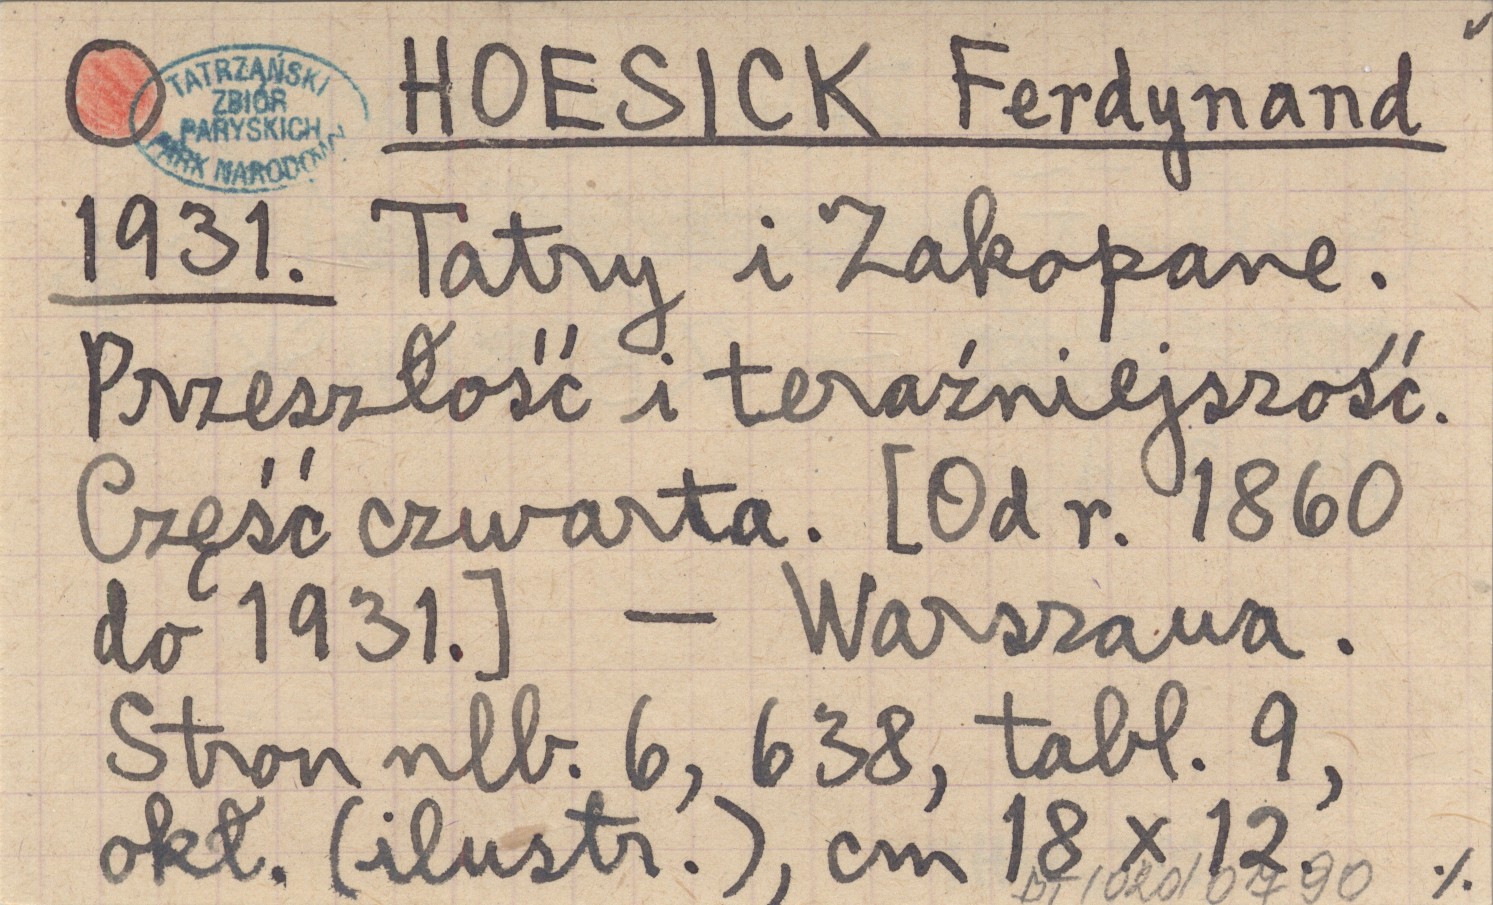 TATRZAŃSKI
ZBIÓR
PARYSKICH
PARK NARODOWY
HOESICK Ferdynand
1931. Tatry i Zakopane.
Przeszłość i teraźniejszość.
Część czwarta. [Od r. 1860
do 1931.] — Warszawa.
Stron nlb. 6, 638, tabl. 9,
okł. (ilustr.), cm 18 x 12.
0790 ./.